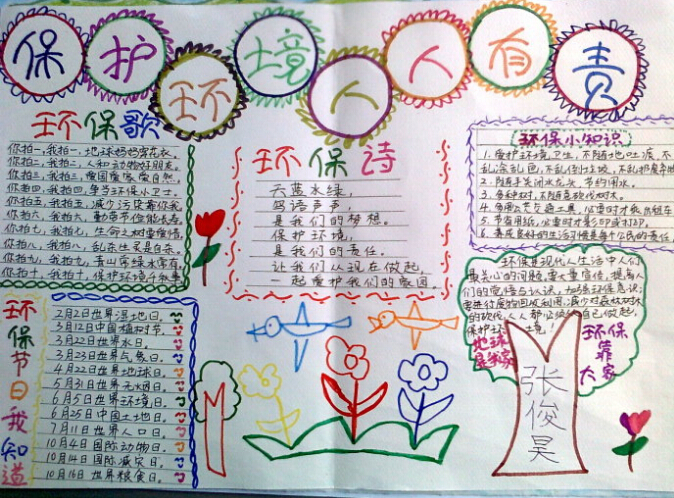 保护环境人人有责
环保歌
你拍一,我拍一,地球妈妈穿花衣。
你拍二,我拍二,人和动物好朋友。
你拍三,我拍三,爱国爱家爱自然。
你拍四,我拍四,争当环保小卫士。
你拍五,我拍五,减少污染靠你我。
你拍六,我拍六,勤俭节约能长久。
你拍七,我拍七,生命之树要爱惜。
你拍八,我拍八,乱砍
你拍九,我拍九,青山绿水常有
你拍十,我拍十,保护环境
环保诗
天蓝水绿,
鸟语声声,
是我们的梦想。
保护环境,
是我们的责任。
让我们从现在做起,
一起爱护我们的家园。
环保小知识
1.爱护环境卫生,不随地吐痰,不
乱涂乱画,不乱扔垃圾,不乱
2.随手关闭水龙头,节约用水。
3.多种树,不随意砍伐树木。
4.多乘公交交通工具,必要时才乘出租车
5.节省用纸,必要时才影印或打印。
6.养成良好的生活习惯是每个公民的责任。
环保是现代人生活中人们
最关心的问题,要大量宣传,提高人
们的觉悟与认识,加强环保意识;
要进行废物回收利用,减少对森林树木
的砍伐,人人都必须从自己做起,
保护环境
地球是我家
环保靠大家
张俊昊
环保节日我知道
2月2日世界湿地日。
3月12日中国植树节。
3月22日世界水日。
3月23日世界气象日。
4月22日世界地球日。
5月31日世界无烟日。
6月5日世界环境日。
6月25日中国土地日。
7月11日世界人口日。
10月4日国际动物日。
10月14日国际减灾日。
10月16日世界粮食日。